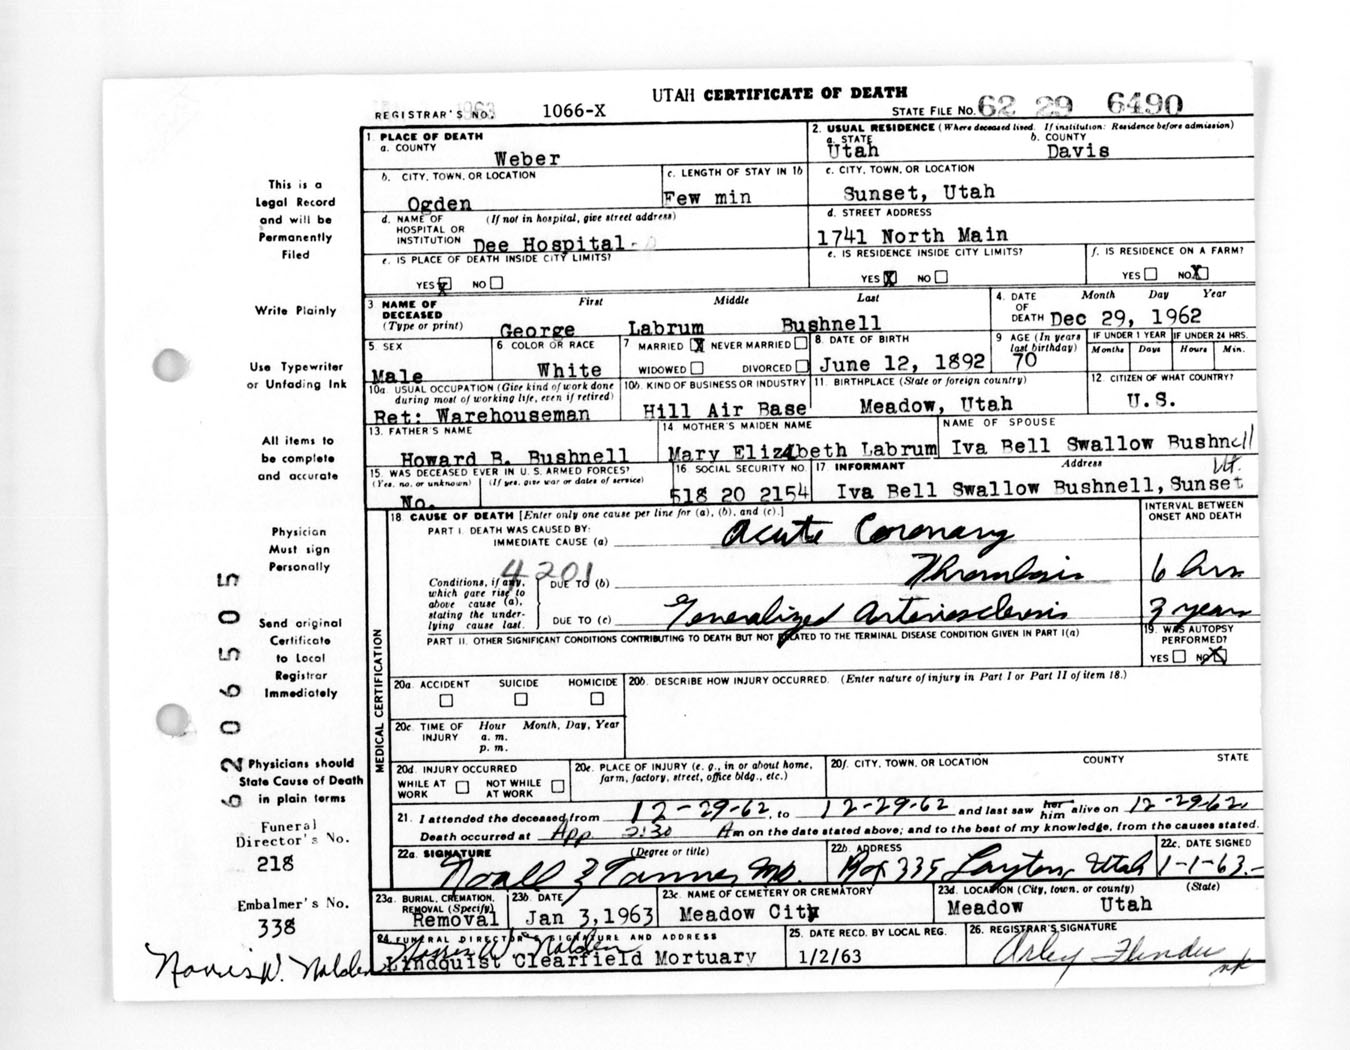 UTAH CERTIFICATE OF DEATH
REGISTRAR'S NO. 1066-X STATE FILE NO. 62 29 6490
1. PLACE OF DEATH
a. COUNTY
Weber
2. USUAL RESIDENCE (Where deceased lived. If institution: Residence before admission)
a. STATE b. COUNTY
Utah Davis
b. CITY, TOWN, OR LOCATION
Ogden
c. LENGTH OF STAY IN 1b
Few min
c. CITY, TOWN, OR LOCATION
Sunset, Utah
d. NAME OF (If not in hospital, give street address)
HOSPITAL OR
INSTITUTION Dee Hospital
d. STREET ADDRESS
1741 North Main
e. IS PLACE OF DEATH INSIDE CITY LIMITS?
YES X NO
e. IS RESIDENCE INSIDE CITY LIMITS?
YES X NO
f. IS RESIDENCE ON A FARM?
YES NO X
3. NAME OF DECEASED (Type or print)
First Middle Last
George Labrum Bushnell
4. DATE OF DEATH
Month Day Year
Dec 29, 1962
5. SEX
Male
6. COLOR OR RACE
White
7. MARRIED X NEVER MARRIED
WIDOWED DIVORCED
8. DATE OF BIRTH
June 12, 1892
9. AGE (In years last birthday)
70
IF UNDER 1 YEAR IF UNDER 24 HRS.
Months Days Hours Min.
10a. USUAL OCCUPATION (Give kind of work done
during most of working life, even if retired)
Ret: Warehouseman
10b. KIND OF BUSINESS OR INDUSTRY
Hill Air Base
11. BIRTHPLACE (State or foreign country)
Meadow, Utah
12. CITIZEN OF WHAT COUNTRY?
U.S.
13. FATHER'S NAME
Howard B. Bushnell
14. MOTHER'S MAIDEN NAME
Mary Elizabeth Labrum
NAME OF SPOUSE
Iva Bell Swallow Bushnell
15. WAS DECEASED EVER IN U.S. ARMED FORCES?
(Yes, no, or unknown) (If yes, give war or dates of service)
No.
16. SOCIAL SECURITY NO.
518 20 2154
17. INFORMANT Address
Iva Bell Swallow Bushnell, Sunset Ut.
18. CAUSE OF DEATH [Enter only one cause per line for (a), (b), and (c).]
INTERVAL BETWEEN
ONSET AND DEATH
PART I. DEATH WAS CAUSED BY:
IMMEDIATE CAUSE (a) Acute Coronary
4201
Conditions, if any,
which gave rise to
above cause (a),
stating the under-
lying cause last.
DUE TO (b) Thrombosis 6 hrs
DUE TO (c) Generalized Arteriosclerosis 3 years
PART II. OTHER SIGNIFICANT CONDITIONS CONTRIBUTING TO DEATH BUT NOT RELATED TO THE TERMINAL DISEASE CONDITION GIVEN IN PART I(a)
19. WAS AUTOPSY
PERFORMED?
YES NO X
MEDICAL CERTIFICATION
20a. ACCIDENT SUICIDE HOMICIDE
20b. DESCRIBE HOW INJURY OCCURRED. (Enter nature of injury in Part I or Part II of item 18.)
20c. TIME OF INJURY
Hour Month, Day, Year
a. m.
p. m.
20d. INJURY OCCURRED
WHILE AT WORK NOT WHILE AT WORK
20e. PLACE OF INJURY (e. g., in or about home,
farm, factory, street, office bldg., etc.)
20f. CITY, TOWN, OR LOCATION COUNTY STATE
21. I attended the deceased from 12-29-62, to 12-29-62 and last saw her him alive on 12-29-62
Death occurred at App. 2:30 A m on the date stated above; and to the best of my knowledge, from the causes stated.
22a. SIGNATURE (Degree or title)
Noall Z Tanner MD.
22b. ADDRESS
Box 335 Layton, Utah
22c. DATE SIGNED
1-1-63
23a. BURIAL, CREMATION,
REMOVAL (Specify)
Removal
23b. DATE
Jan 3, 1963
23c. NAME OF CEMETERY OR CREMATORY
Meadow City
23d. LOCATION (City, town, or county) (State)
Meadow Utah
24. FUNERAL DIRECTOR'S SIGNATURE AND ADDRESS
Norris W. Nalder
Lindquist Clearfield Mortuary
25. DATE RECD. BY LOCAL REG.
1/2/63
26. REGISTRAR'S SIGNATURE
This is a
Legal Record
and will be
Permanently
Filed
Write Plainly
Use Typewriter
or Unfading Ink
All items to
be complete
and accurate
Physician
Must sign
Personally
Send original
Certificate
to Local
Registrar
Immediately
Physicians should
State Cause of Death
in plain terms
Funeral
Director's No.
218
Embalmer's No.
338
Norris W. Nalder
6206505